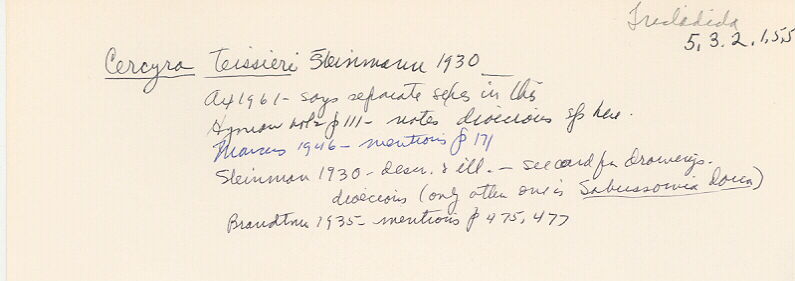 Tricladida
5, 3. 2. 1, 5, 5
Cercyra teissieri Steinmann 1930
Ax 1961 - says separate sexes in this
Hyman vol 2 p 111 - notes dioecious sp here.
Marcus 1946 - mentions p 171
Steinman 1930 - descr. & ill. - see card for drawings.
dioecious (only other one is Sabussowia dioica)
Brandtner 1935 - mentions p 475, 477